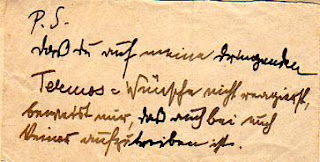 P.S.
Daß du auf meine dringenden
Termos = Wünsche nicht reagierst,
beweist mir, daß auch bei euch
keiner aufzutreiben ist.